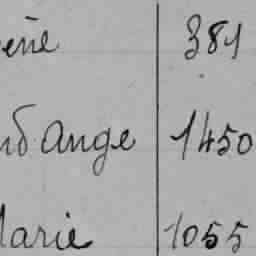 ène 381
nd Ange 1450
Marie 1055